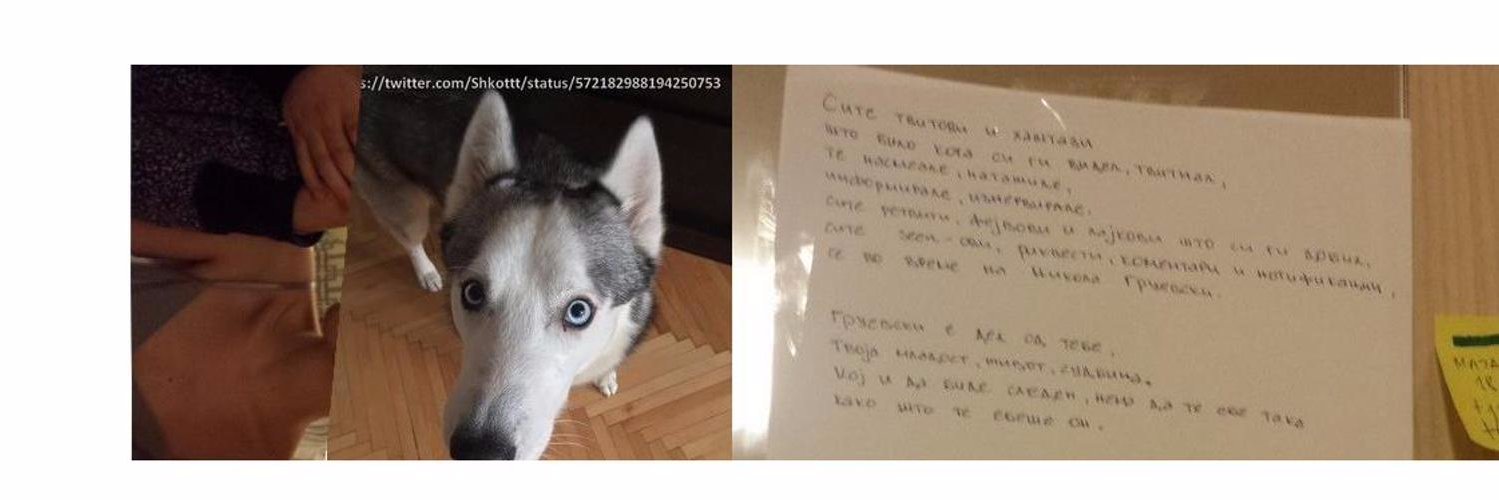 s://twitter.com/Shkottt/status/572182988194250753
Сите твитови и хаштази
што било кога си ги видел, твитнал,
те насмеале, натажиле,
информирале, изнервирале,
сите ретвити, фејвови и лајкови што си ги добил,
сите seen-ови, риквести, коментари и нотификации,
се во време на Никола Груевски.
Груевски е дел од тебе,
Твоја младост, живот, судбина.
Кој и да биде следен, нема да те ебе така
како што те ебеше он.